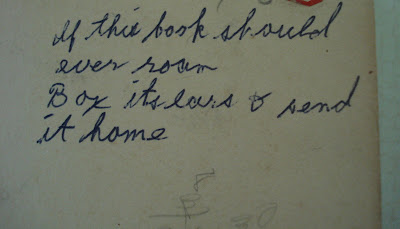 If this book should
ever roam
Box its ears & send
it home